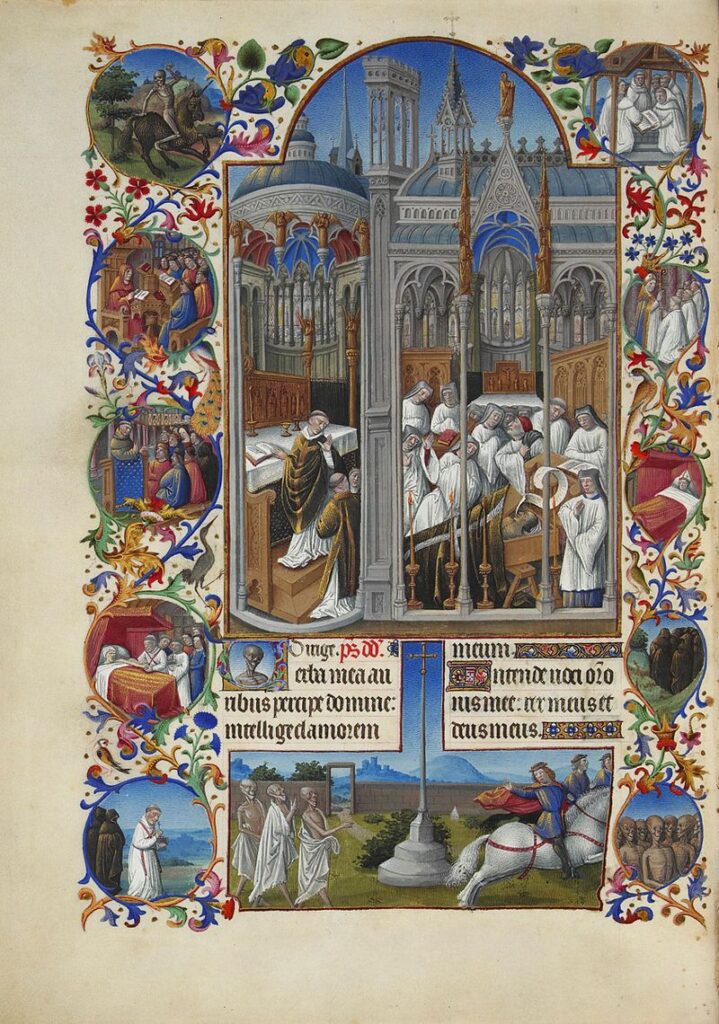 Dirige. p̄s. dd̄.
Verba mea au
ribus percipe domine:
intellige clamorem
meum.
Intende voci or̄o
nis mee: rex meus et
deus meus.